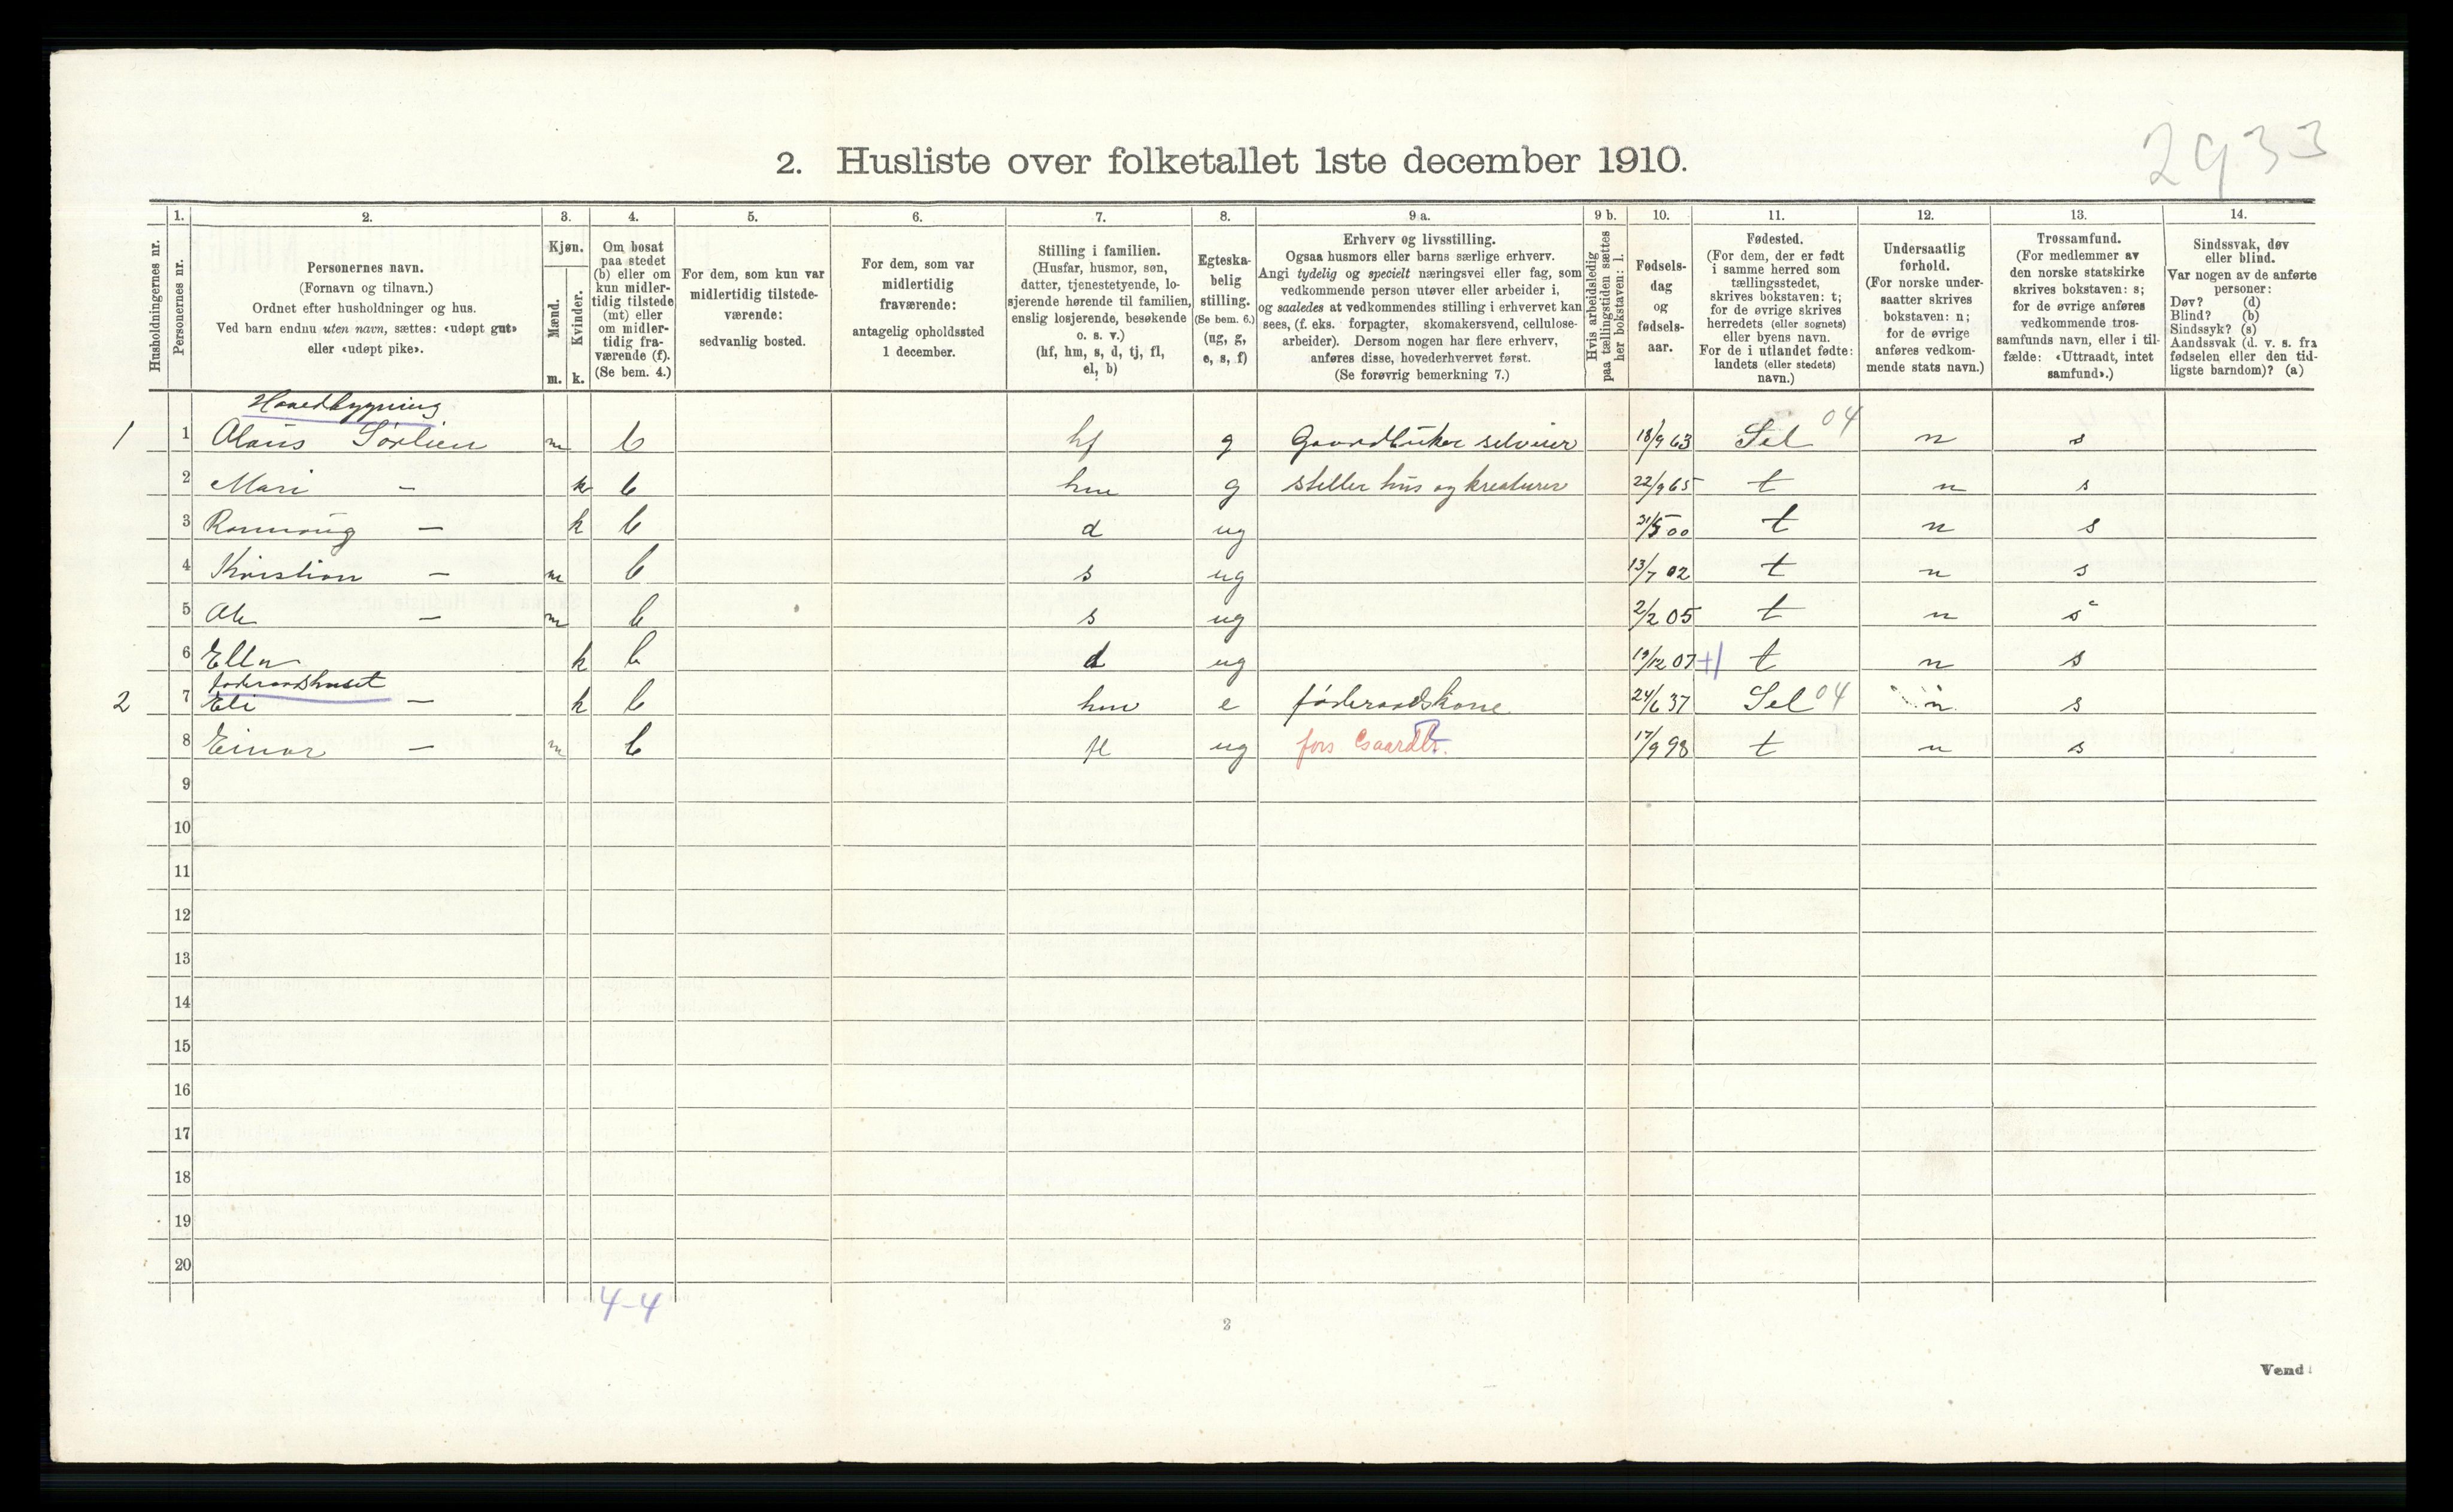 2933
2. Husliste over folketallet 1ste december 1910.
1. 2. 3. 4. 5. 6. 7. 8. 9 a. 9 b. 10. 11. 12. 13. 14.
Husholdningernes nr.
Personernes nr.
Personernes navn.
(Fornavn og tilnavn.)
Ordnet efter husholdninger og hus.
Ved barn endnu uten navn, sættes: «udøpt gut»
eller «udøpt pike».
Kjøn.
Mænd.
Kvinder.
m. k.
Om bosat
paa stedet
(b) eller om
kun midler-
tidig tilstede
(mt) eller
om midler-
tidig fra-
værende (f).
(Se bem. 4.)
For dem, som kun var
midlertidig tilstede-
værende:
sedvanlig bosted.
For dem, som var
midlertidig
fraværende:
antagelig opholdssted
1 december.
Stilling i familien.
(Husfar, husmor, søn,
datter, tjenestetyende, lo-
sjerende hørende til familien,
enslig losjerende, besøkende
o. s. v.)
(hf, hm, s, d, tj, fl,
el, b)
Egteska-
belig
stilling.
(Se bem. 6.)
(ug, g,
e, s, f)
Erhverv og livsstilling.
Ogsaa husmors eller barns særlige erhverv.
Angi tydelig og specielt næringsvei eller fag, som
vedkommende person utøver eller arbeider i,
og saaledes at vedkommendes stilling i erhvervet kan
sees, (f. eks. forpagter, skomakersvend, cellulose-
arbeider). Dersom nogen har flere erhverv,
anføres disse, hovederhvervet først.
(Se forøvrig bemerkning 7.)
Hvis arbeidsledig
paa tællingstiden sættes
her bokstaven: l.
Fødsels-
dag
og
fødsels-
aar.
Fødested.
(For dem, der er født
i samme herred som
tællingsstedet,
skrives bokstaven: t;
for de øvrige skrives
herredets (eller sognets)
eller byens navn.
For de i utlandet fødte:
landets (eller stedets)
navn.)
Undersaatlig
forhold.
(For norske under-
saatter skrives
bokstaven: n;
for de øvrige
anføres vedkom-
mende stats navn.)
Trossamfund.
(For medlemmer av
den norske statskirke
skrives bokstaven: s;
for de øvrige anføres
vedkommende tros-
samfunds navn, eller i til-
fælde: «Uttraadt, intet
samfund».)
Sindssvak, døv
eller blind.
Var nogen av de anførte
personer:
Døv? (d)
Blind? (b)
Sindssyk? (s)
Aandssvak (d. v. s. fra
fødselen eller den tid-
ligste barndom)? (a)
Hovedbygning
1 1 Olaus Sørlien m b hf g Gaardbruker selveier 18/9 63 Sel 04 n s
2 Mari — k b hm g steller hus og kreaturer 22/9 65 t n s
3 Rønnaug — k b d ug 31/5 00 t n s
4 Kristian — m b s ug 13/7 02 t n s
5 Ole — m b s ug 2/2 05 t n s
6 Ella k b d ug 19/12 07 +1 t n s
foderaadshuset
2 7 Eli — k b hm e føderaadskone 24/6 37 Sel 04 n s
8 Einar — m b fl ug fors Gaardbr. 17/9 98 t n s
9
10
11
12
13
14
15
16
17
18
19
20
4-4
2
Vend!